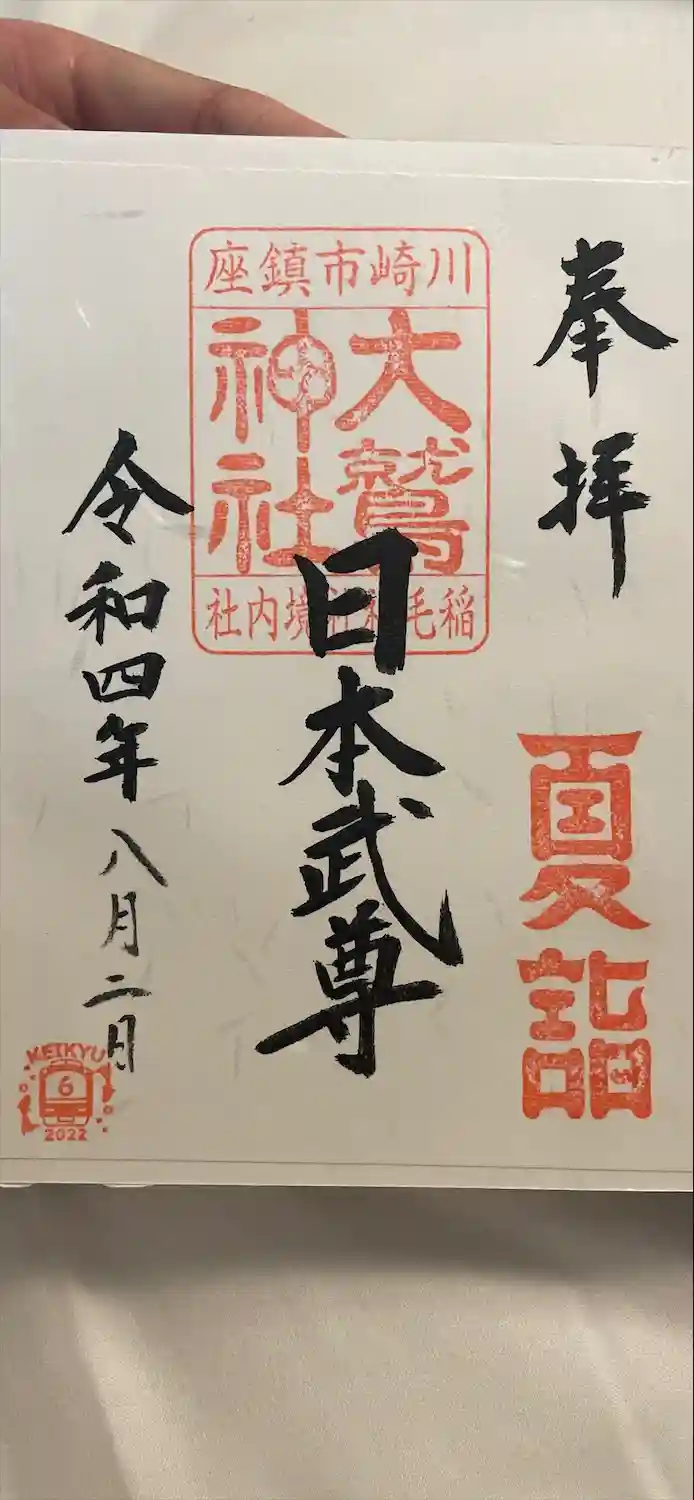 奉拝
夏詣
川崎市鎮座
大鷲
神社
稲毛神社境内社
日本武尊
令和四年八月二日
KEIKYU
6
2022